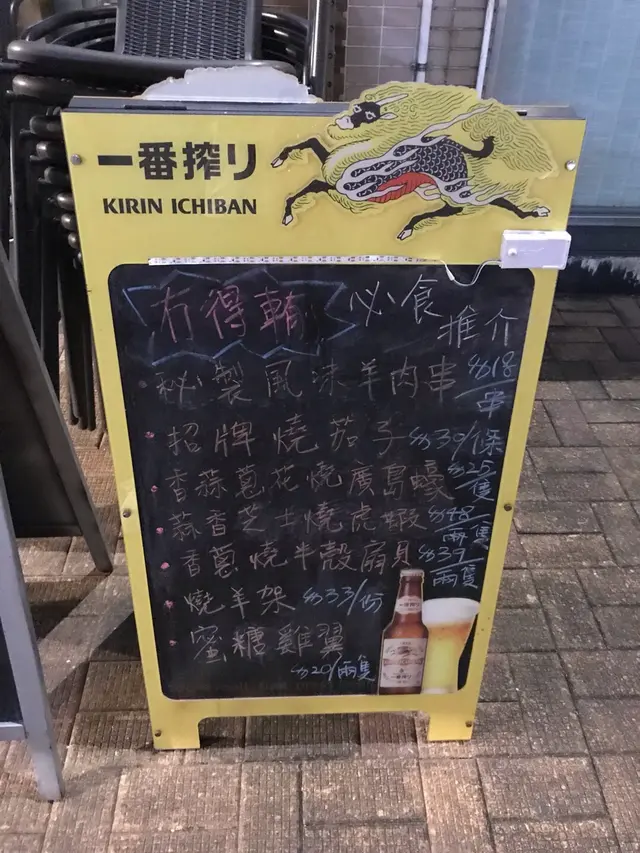 一番搾り
KIRIN ICHIBAN
冇得輸 必食推介
秘製風味羊肉串 $18/串
招牌燒茄子 $39/條
香蒜蔥花燒廣島蠔 $25/隻
蒜香芝士燒虎蝦 $48/兩隻
香蔥燒半殼扇貝 $39/兩隻
燒羊架 $33/份
蜜糖雞翼
$20/兩隻
一番搾り